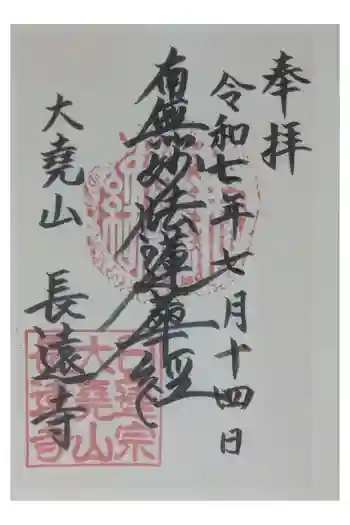 奉拝
令和七年七月十四日
南無妙法蓮華經
大堯山
長遠寺
日蓮宗
大堯山
長遠寺